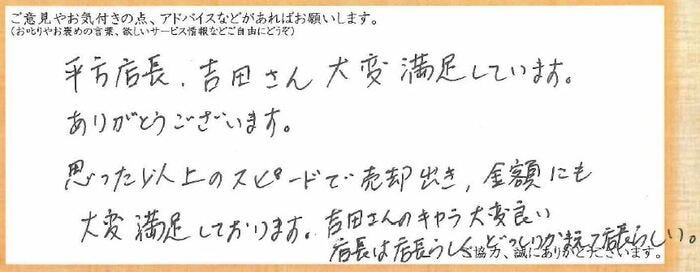 ご意見やお気付きの点、アドバイスなどがあればお願いします。
(お叱りやお褒めの言葉、欲しいサービス情報などご自由にどうぞ)
平方店長、吉田さん 大変満足しています。
ありがとうございます。
思った以上のスピードで売却出き、金額にも
大変満足しております。吉田さんのキャラ大変良い
店長は店長らしくどっしりかまえて店長らしい。
ご協力、誠にありがとうございます。